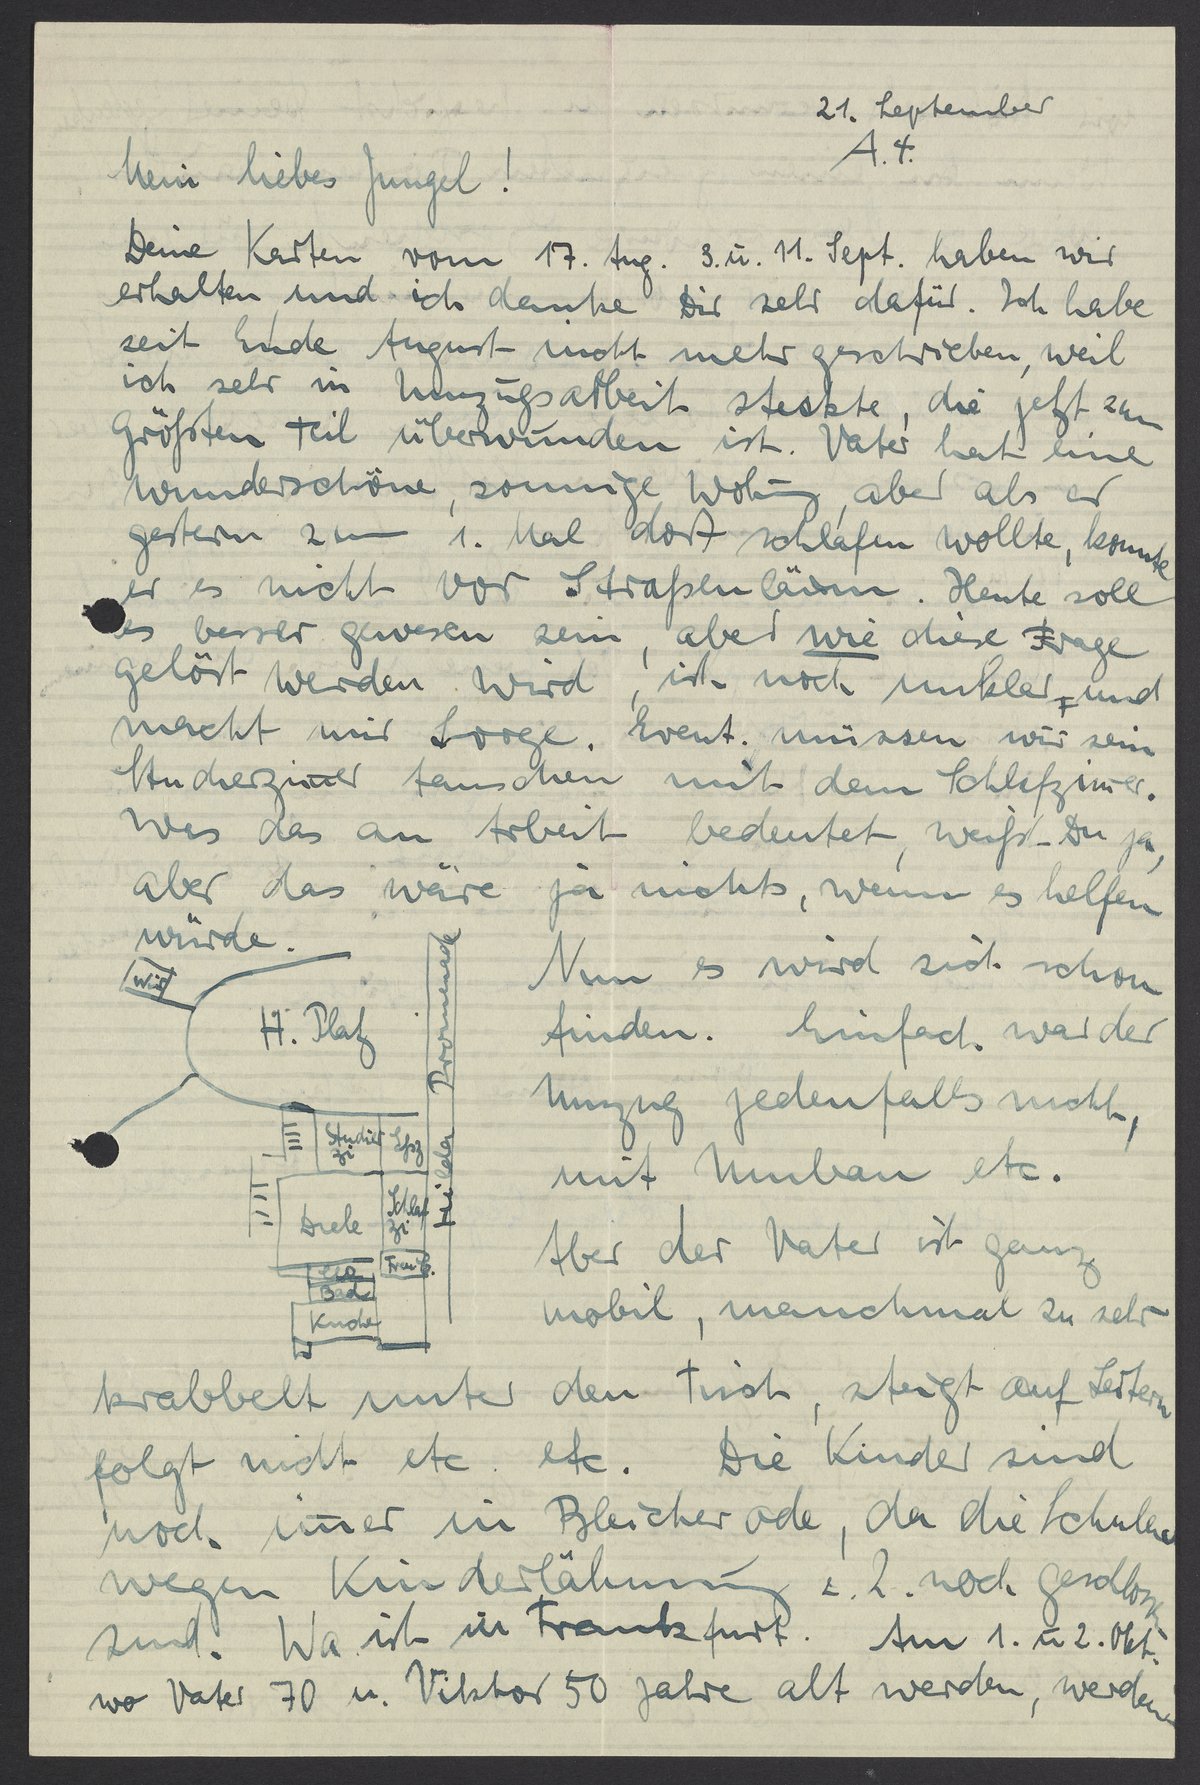 21. September
A. 4.
Mein liebes Jungel!
Deine Karten vom 17. Aug. 3. u. 11. Sept. haben wir
erhalten und ich danke Dir sehr dafür. Ich habe
seit Ende August nicht mehr geschrieben, weil
ich sehr in Umzugsarbeit steckte, die jetzt zum
größten Teil überwunden ist. Vater hat eine
wunderschöne, sonnige Wohng, aber als er
gestern zum 1. Mal dort schlafen wollte, konnte
er es nicht vor Straßenlärm. Heute soll
es besser gewesen sein, aber wie diese Frage
gelöst werden wird, ist noch unklar und
macht mir Sorge. Event. müssen wir sein
Studierzim̄er tauschen mit dem Schlafzim̄er.
Was das an Arbeit bedeutet, weißt Du ja,
aber das wäre ja nichts, wenn es helfen
würde.
Nun es wird sich schon
finden. Einfach war der
Umzug jedenfalls nicht,
mit Umbau etc.
Aber der Vater ist ganz
mobil, manchmal zu sehr
Wir
H. Platz
Hilda Promenade
Studier
zi
Esz
Diele
Schlaf
zi
Frau B.
Bad
Küche
krabbelt unter den Tisch, steigt auf Leitern
folgt nicht etc. etc. Die Kinder sind
noch im̄er in Bleicherode, da die Schulen
wegen Kinderlähmung z. Z. noch geschlossen
sind. Wa ist in Frankfurt. Am 1. u 2. Okt.
wo Vater 70 u. Viktor 50 Jahre alt werden, werden